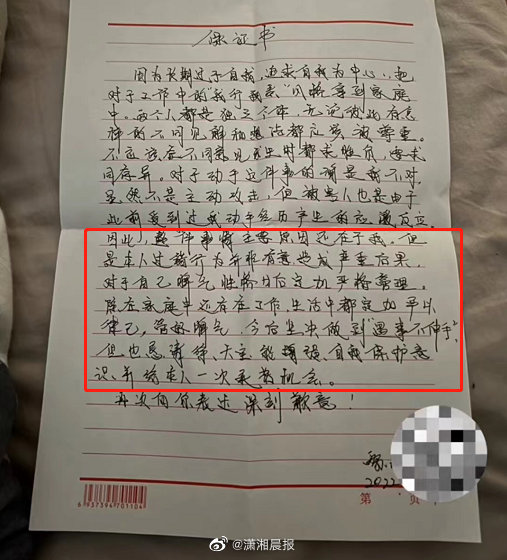 保证书
因为长期过于自我,追求自我为中心,把
对于工作中的"我行我素"风格拿到家庭
中。两个人都是独立个体,无论彼此存在怎
样的不同见解和想法都应该被尊重。
不应该在不同意见发生时都求胜负,要求
同存异。对于动手这件事的确是我不对,
虽然不是主动攻击,但被害人也是由于
此前受到过我动手经历产生的应激反应。
因此,整件事情主要原因还在于我,但
是本人过激行为并非有意造成严重后果,
对于自己脾气性格今后定加严格管理。
除在家庭中还有在工作、生活中都定加平以
律己,管好脾气,今后坚决做到"遇事不伸手",
但也恳请徐女士能增强自我保护意
识,并给本人一次来者机会。
再次向你表达深刻歉意!
2022
第 页
6937394701104
@潇湘晨报